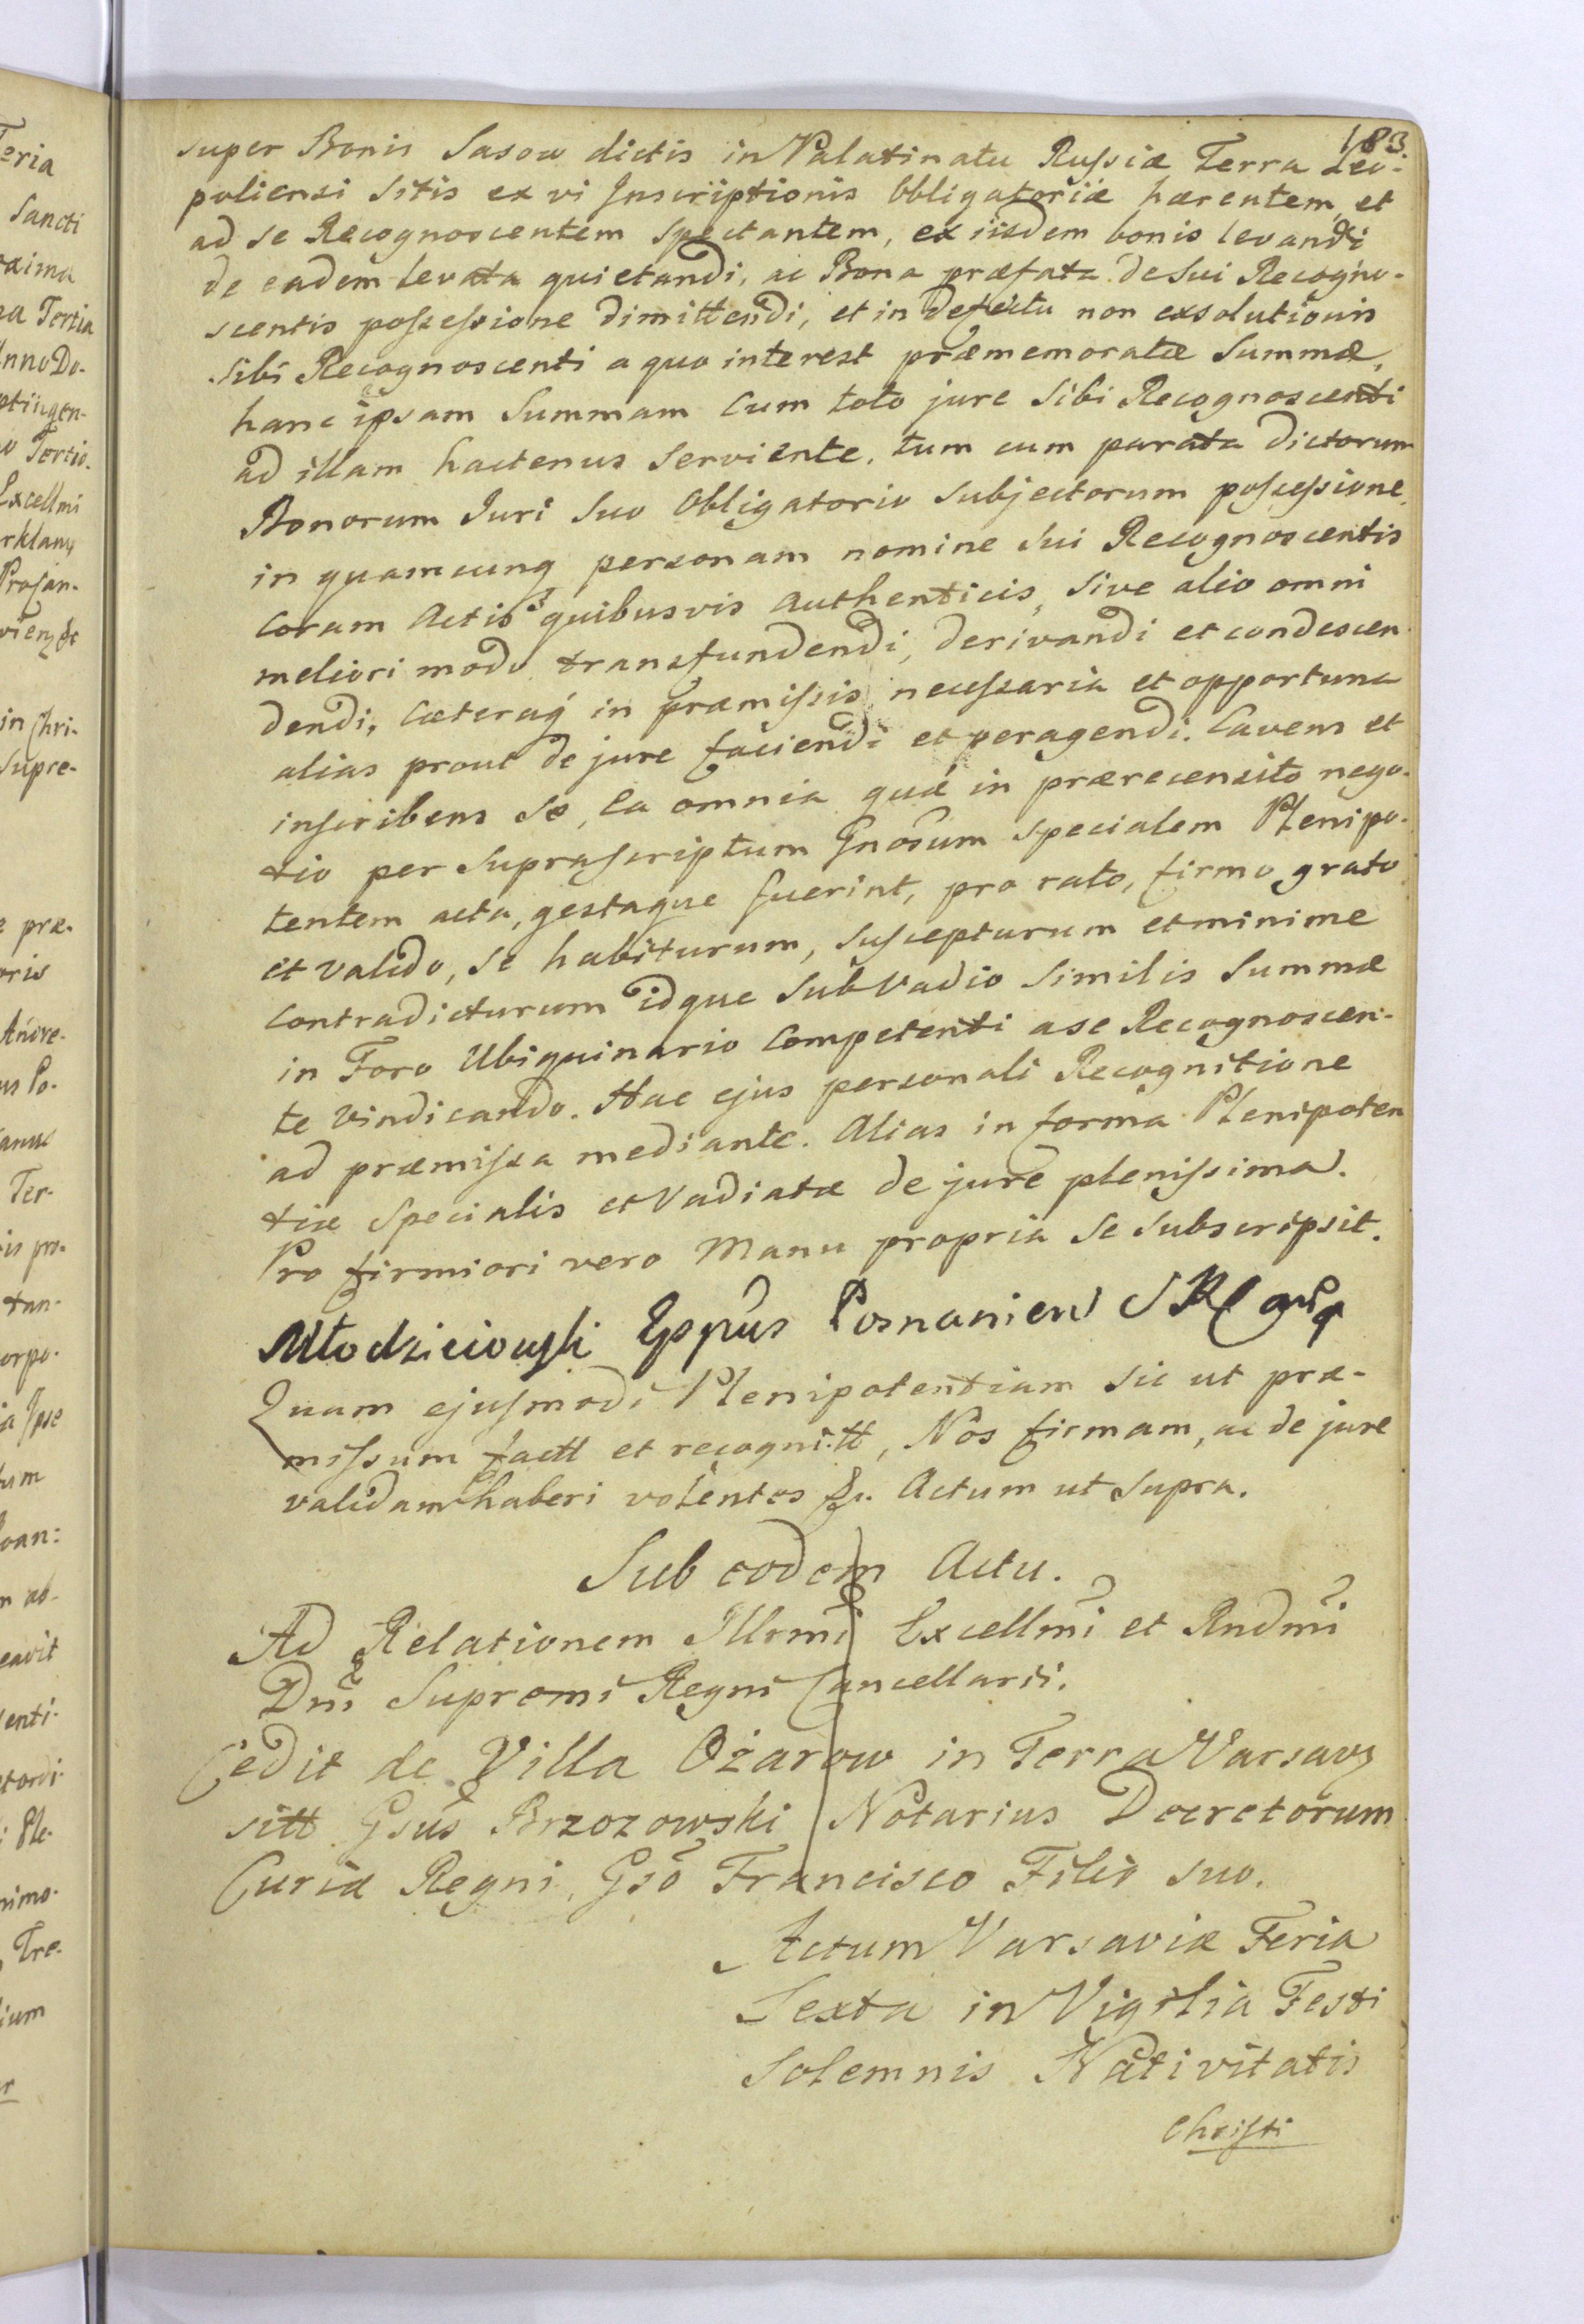 183
super Bonis Sasow dictis in Palatinatu Russiæ Terra Leo-
poliensi sitis ex vi Inscriptionis Obligatoriæ hærentem, et
ad se Recognoscentem spectantem, ex iisdem bonis levandi
de eadem levata quietandi, ac Bona præfata de sui Recogno-
scentis possessione dimittendi, et in defectu non exsolutionis
sibi Recognoscenti a quo interest præmemoratæ Summæ,
hanc ipsam Summam cum toto jure sibi Recognoscenti
ad illam hactenus serviente, tum cum parata dictorum
Bonorum Juri suo Obligatorio subjectorum possessione,
in quamcunq personam nomine sui Recognoscentis
Coram Actis quibusvis Authenticis, sive alio omni
meliori modo transfundendi, derivandi et condescen
dendi, Cæteraq in præmissis necessaria et opportuna
alias prout de jure faciendi et peragendi. Cavens et
inscribens se, Ea omnia quæ in prærecensito nego-
tio per suprascriptum Gnosum specialem Plenipo-
tentem acta, gestaque fuerint, pro rato, firmo grato
et valido, se habiturum, suscepturum et minime
contradicturum idque sub Vadio similis Summæ
in Foro Ubiquinario Competenti a se Recognoscen-
te vindicando. Hac ejus personali Recognitione
ad præmissa mediante. Alias in forma Plenipoten
tiæ specialis et Vadiatæ de jure plenissima.
Pro firmiori vero Manu propria se subscripsit.
Młodzieiowski Eppus Posnaniens
Quam ejusmodi Plenipotentiam sic ut præ-
missum factt et recognitt, Nos firmam, ac de jure
validam haberi volentes &. Actum ut supra.
Sub eodem Actu.
Ad Relationem Illrmi Excellmi et Rndmi
Dni Supremi Regni Cancellarii.
Cedit de Villa Ożarow in Terra Varsavz
sitt Gsus Brzozowski Notarius Decretorum
Curiæ Regni, Gso Francisco Filio suo.
Actum Varsaviæ Feria
Sexta in Vigilia Festi
Solemnis Nativitatis
Christi